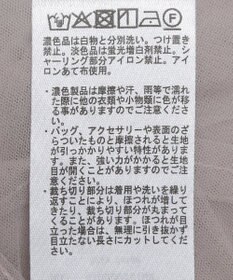 濃色品は白物と分別洗い。つけ置き
禁止。淡色品は蛍光増白剤禁止。シ
ャーリング部分アイロン禁止。アイ
ロンあて布使用。
・濃色製品は摩擦や汗、雨等で濡れ
た際に他の衣類や小物類に色が移
る事がありますのでご注意くださ
い。
・バッグ、アクセサリーや表面のざ
らついたものと摩擦されると生地
が引っかかりやすい特性がありま
す。また、強い力がかかると生地
目が開くことがありますのでご注
意ください。
・裁ち切り部分は着用や洗いを繰り
返すことにより、ほつれが増して
きたり、裁ち切り部分が丸まって
くることがあります。ほつれが目
立った場合は、無理に引き抜かず
目立たない長さにカットしてくだ
さい。